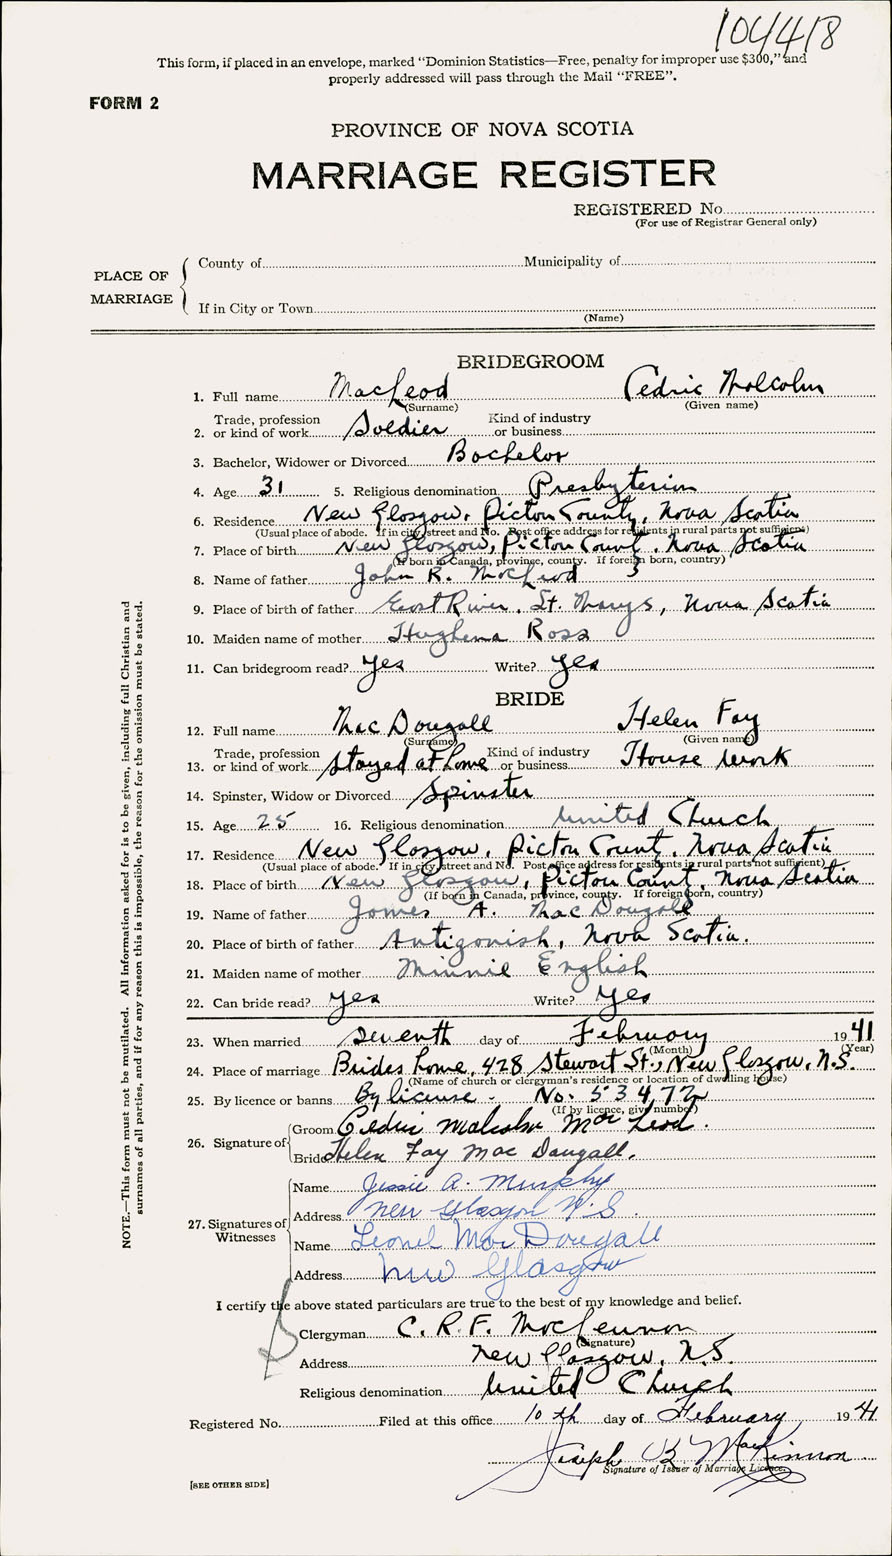 104418
This form, if placed in an envelope, marked "Dominion Statistics—Free, penalty for improper use $300," and
properly addressed will pass through the Mail "FREE".
FORM 2
PROVINCE OF NOVA SCOTIA
MARRIAGE REGISTER
REGISTERED No.
(For use of Registrar General only)
PLACE OF MARRIAGE
County of Municipality of
If in City or Town
(Name)
BRIDEGROOM
1. Full name MacLeod Cedric Malcolm
(Surname) (Given name)
2. Trade, profession or kind of work Soldier Kind of industry or business
3. Bachelor, Widower or Divorced Bachelor
4. Age 31 5. Religious denomination Presbyterian
6. Residence New Glasgow, Pictou County, Nova Scotia
(Usual place of abode. If in city, street and No. Post office address for residents in rural parts not sufficient)
7. Place of birth New Glasgow, Pictou County, Nova Scotia
(If born in Canada, province, county. If foreign born, country)
8. Name of father John R. MacLeod
9. Place of birth of father East River, St. Marys, Nova Scotia
10. Maiden name of mother Hughena Ross
11. Can bridegroom read? yes Write? yes
BRIDE
12. Full name MacDougall Helen Fay
(Surname) (Given name)
13. Trade, profession or kind of work stayed at home Kind of industry or business House work
14. Spinster, Widow or Divorced Spinster
15. Age 25 16. Religious denomination United Church
17. Residence New Glasgow, Pictou County, Nova Scotia
(Usual place of abode. If in city, street and No. Post office address for residents in rural parts not sufficient)
18. Place of birth New Glasgow, Pictou County, Nova Scotia
(If born in Canada, province, county. If foreign born, country)
19. Name of father James A. MacDougall
20. Place of birth of father Antigonish, Nova Scotia.
21. Maiden name of mother Minnie English
22. Can bride read? yes Write? yes
23. When married seventh day of February 1941
(Month) (Year)
24. Place of marriage Brides home, 428 Stewart St., New Glasgow, N.S.
(Name of church or clergyman's residence or location of dwelling house)
25. By licence or banns By license - No. 53472
(If by licence, give number)
26. Signature of
Groom Cedric Malcolm MacLeod.
Bride Helen Fay MacDougall.
27. Signatures of Witnesses
Name Jessie A. Murphy
Address New Glasgow N.S.
Name Lionel MacDougall
Address New Glasgow
I certify the above stated particulars are true to the best of my knowledge and belief.
Clergyman C. R. F. MacLennon
(Signature)
Address New Glasgow, N.S.
Religious denomination United Church
Registered No. Filed at this office 10th day of February 1941
Joseph MacKinnon
Signature of Issuer of Marriage Licence
[SEE OTHER SIDE]
NOTE.—This form must not be mutilated. All information asked for is to be given, including full Christian and
surnames of all parties, and if for any reason this is impossible, the reason for the omission must be stated.